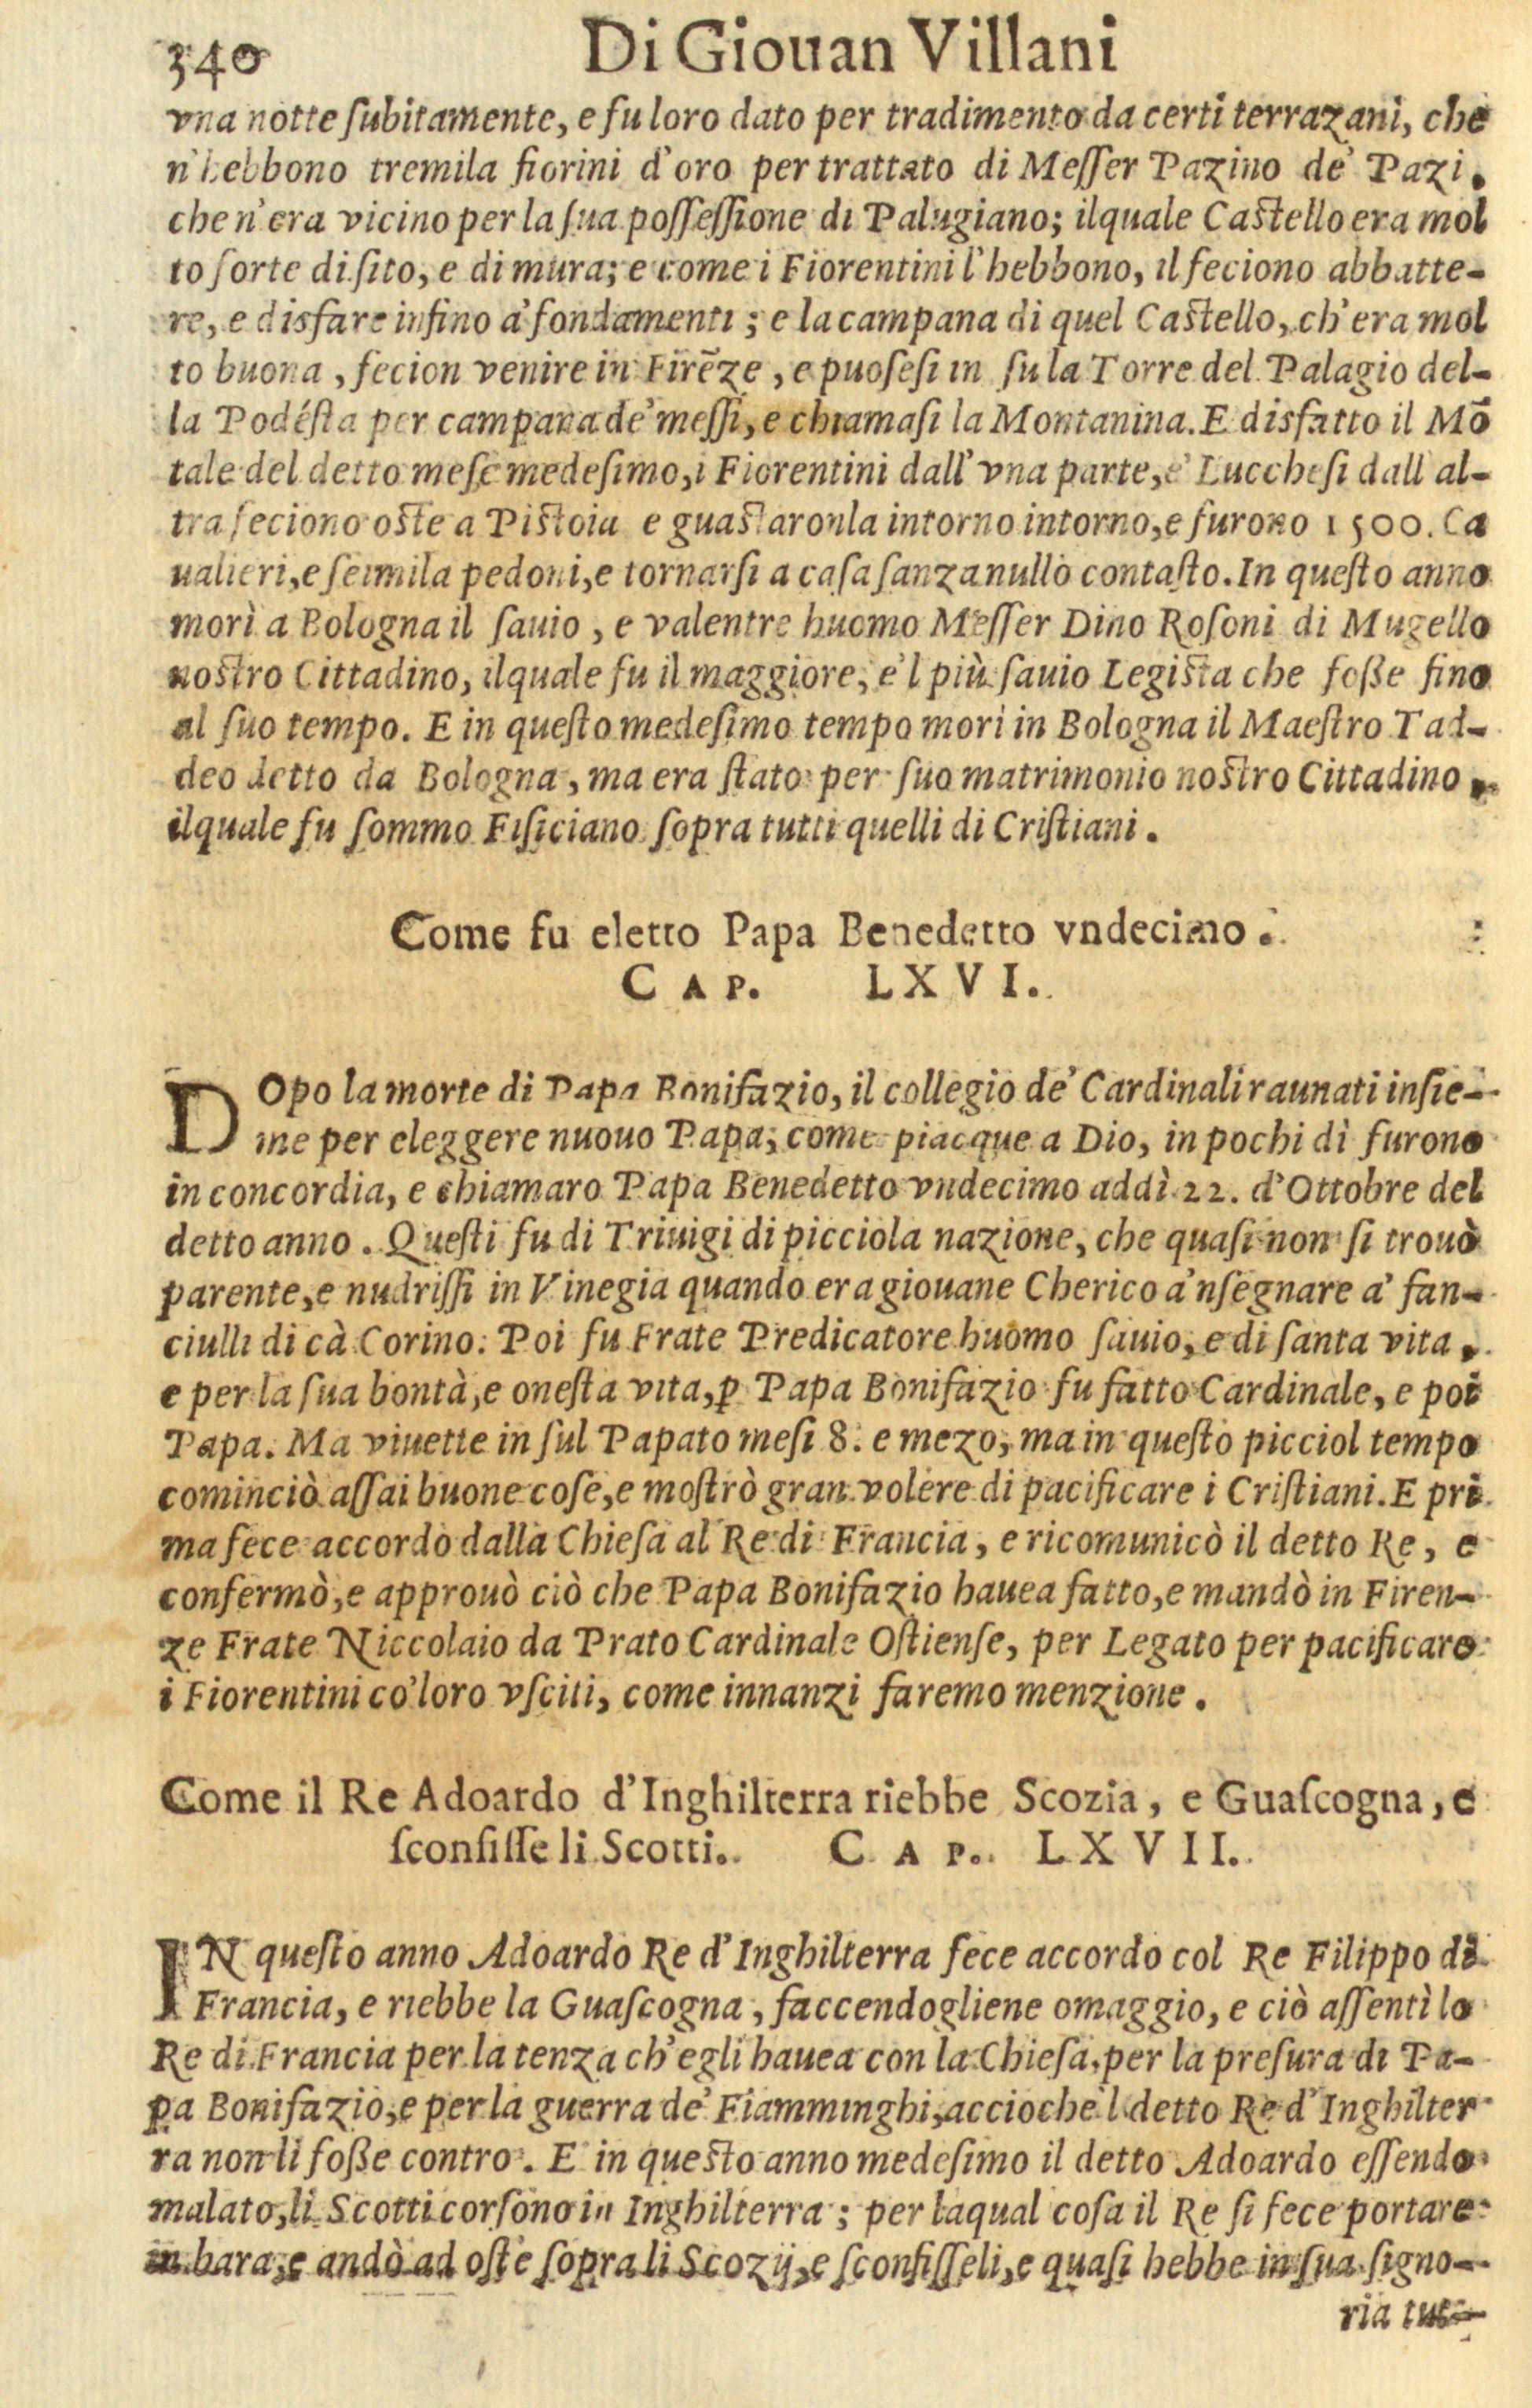 340 Di Giouan Villani
vna notte ſubitamente, e fu loro dato per tradimento da certi terrazani, che
n'hebbono tremila fiorini d'oro per trattato di Meſſer Pazino de' Pazi.
che n'era vicino per la ſua poſſeſſione di Palugiano; ilquale Caſtello era mol
to forte di ſito, e di mura; e come i Fiorentini l'hebbono, il feciono abbatte-
re, e disfare infino a' fondamenti; e la campana di quel Caſtello, ch'era mol
to buona, fecion venire in Firẽze, e puoſeſi in ſu la Torre del Palagio del-
la Podéſta per campana de' meſſi, e chiamaſi la Montanina. E disfatto il Mõ
tale del detto meſe medeſimo, i Fiorentini dall'vna parte, e' Luccheſi dall al-
tra feciono oſte a Piſtoia e guaſtaronla intorno intorno, e furono 1500. Ca
ualieri, e ſeimila pedoni, e tornarſi a caſa ſanza nullo contaſto. In queſto anno
morì a Bologna il ſauio, e valentre huomo Meſſer Dino Roſoni di Mugello
noſtro Cittadino, ilquale fu il maggiore, e'l più ſauio Legiſta che foſſe fino
al ſuo tempo. E in queſto medeſimo tempo morì in Bologna il Maeſtro Tad-
deo detto da Bologna, ma era ſtato per ſuo matrimonio noſtro Cittadino,
ilquale fu ſommo Fiſiciano ſopra tutti quelli di Criſtiani.
Come fu eletto Papa Benedetto vndecimo.
CAP. LXVI.
DOpo la morte di Papa Bonifazio, il collegio de' Cardinali raunati inſie-
me per eleggere nuouo Papa, come piacque a Dio, in pochi dì furono
in concordia, e chiamaro Papa Benedetto vndecimo addì 22. d'Ottobre del
detto anno. Queſti fu di Triuigi di picciola nazione, che quaſi non ſi trouò
parente, e nudriſſi in Vinegia quando era giouane Cherico a'nſegnare a' fan-
ciulli di cà Corino. Poi fu Frate Predicatore huomo ſauio, e di ſanta vita,
e per la ſua bontà, e oneſta vita, ꝑ Papa Bonifazio fu fatto Cardinale, e poi
Papa. Ma viuette in ſul Papato meſi 8. e mezo, ma in queſto picciol tempo
cominciò aſſai buone coſe, e moſtrò gran volere di pacificare i Criſtiani. E pri
ma fece accordo dalla Chieſa al Re di Francia, e ricomunicò il detto Re, e
confermò, e approuò ciò che Papa Bonifazio hauea fatto, e mandò in Firen-
ze Frate Niccolaio da Prato Cardinale Oſtienſe, per Legato per pacificare
i Fiorentini co'loro vſciti, come innanzi faremo menzione.
Come il Re Adoardo d'Inghilterra riebbe Scozia, e Guaſcogna, e
ſconfiſſe li Scotti. CAP. LXVII.
IN queſto anno Adoardo Re d'Inghilterra fece accordo col Re Filippo di
Francia, e riebbe la Guaſcogna, faccendogliene omaggio, e ciò aſſentì lo
Re di Francia per la tenza ch'egli hauea con la Chieſa, per la preſura di Pa-
pa Bonifazio, e per la guerra de' Fiamminghi, acciochè'l detto Re d'Inghilter
ra non li foſſe contro. E in queſto anno medeſimo il detto Adoardo eſſendo
malato, li Scotti corſono in Inghilterra; per laqual coſa il Re ſi fece portare
in bara, e andò ad oſte ſopra li Scozij, e ſconfiſſeli, e quaſi hebbe in ſua ſigno-
ria tut-